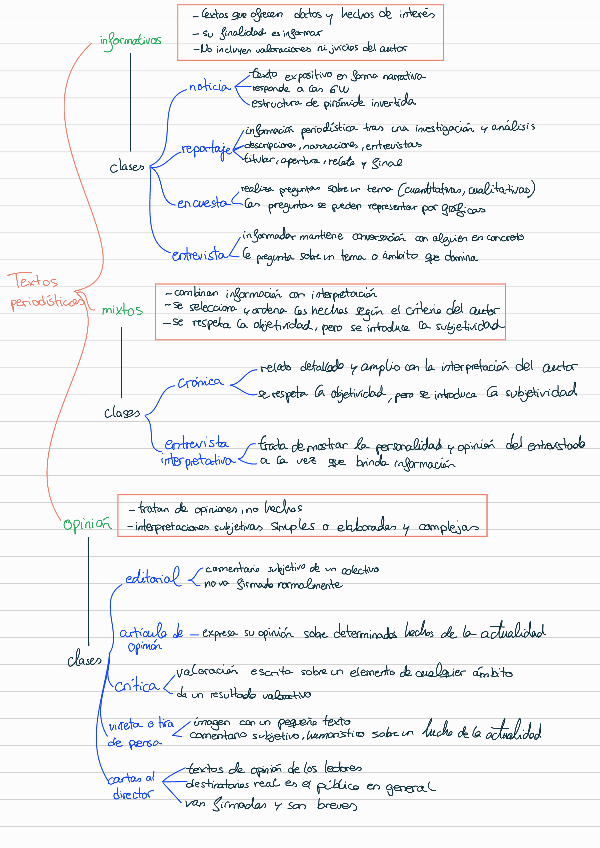 Textos
periodísticos
informativos
- textos que ofrecen datos y hechos de interés
- su finalidad es informar
- No incluyen valoraciones ni juicios del autor
clases
noticia
texto expositivo en forma narrativa
responde a las 6W
estructura de pirámide invertida
reportaje
información periodística tras una investigación y análisis
descripciones, narraciones, entrevistas
titular, apertura, relato y final
encuesta
realiza preguntas sobre un tema (cuantitativas, cualitativas)
las preguntas se pueden representar por gráficas
entrevista
informador mantiene conversación con alguien en concreto
le pregunta sobre un tema o ámbito que domina
mixtos
- combinan información con interpretación
- se selecciona y ordena los hechos según el criterio del autor
- se respeta la objetividad, pero se introduce la subjetividad
clases
crónica
relato detallado y amplio con la interpretación del autor
se respeta la objetividad, pero se introduce la subjetividad
entrevista
interpretativa
trata de mostrar la personalidad y opinión del entrevistado
a la vez que brinda información
opinión
- tratan de opiniones, no hechos
- interpretaciones subjetivas simples o elaboradas y complejas
clases
editorial
comentario subjetivo de un colectivo
no va firmado normalmente
artículo de
opinión
- expresa su opinión sobre determinados hechos de la actualidad
crítica
valoración escrita sobre un elemento de cualquier ámbito
da un resultado valorativo
viñeta o tira
de prensa
imagen con un pequeño texto
comentario subjetivo, humorístico sobre un hecho de la actualidad
cartas al
director
textos de opinión de los lectores
destinatario real es el público en general
van firmadas y son breves